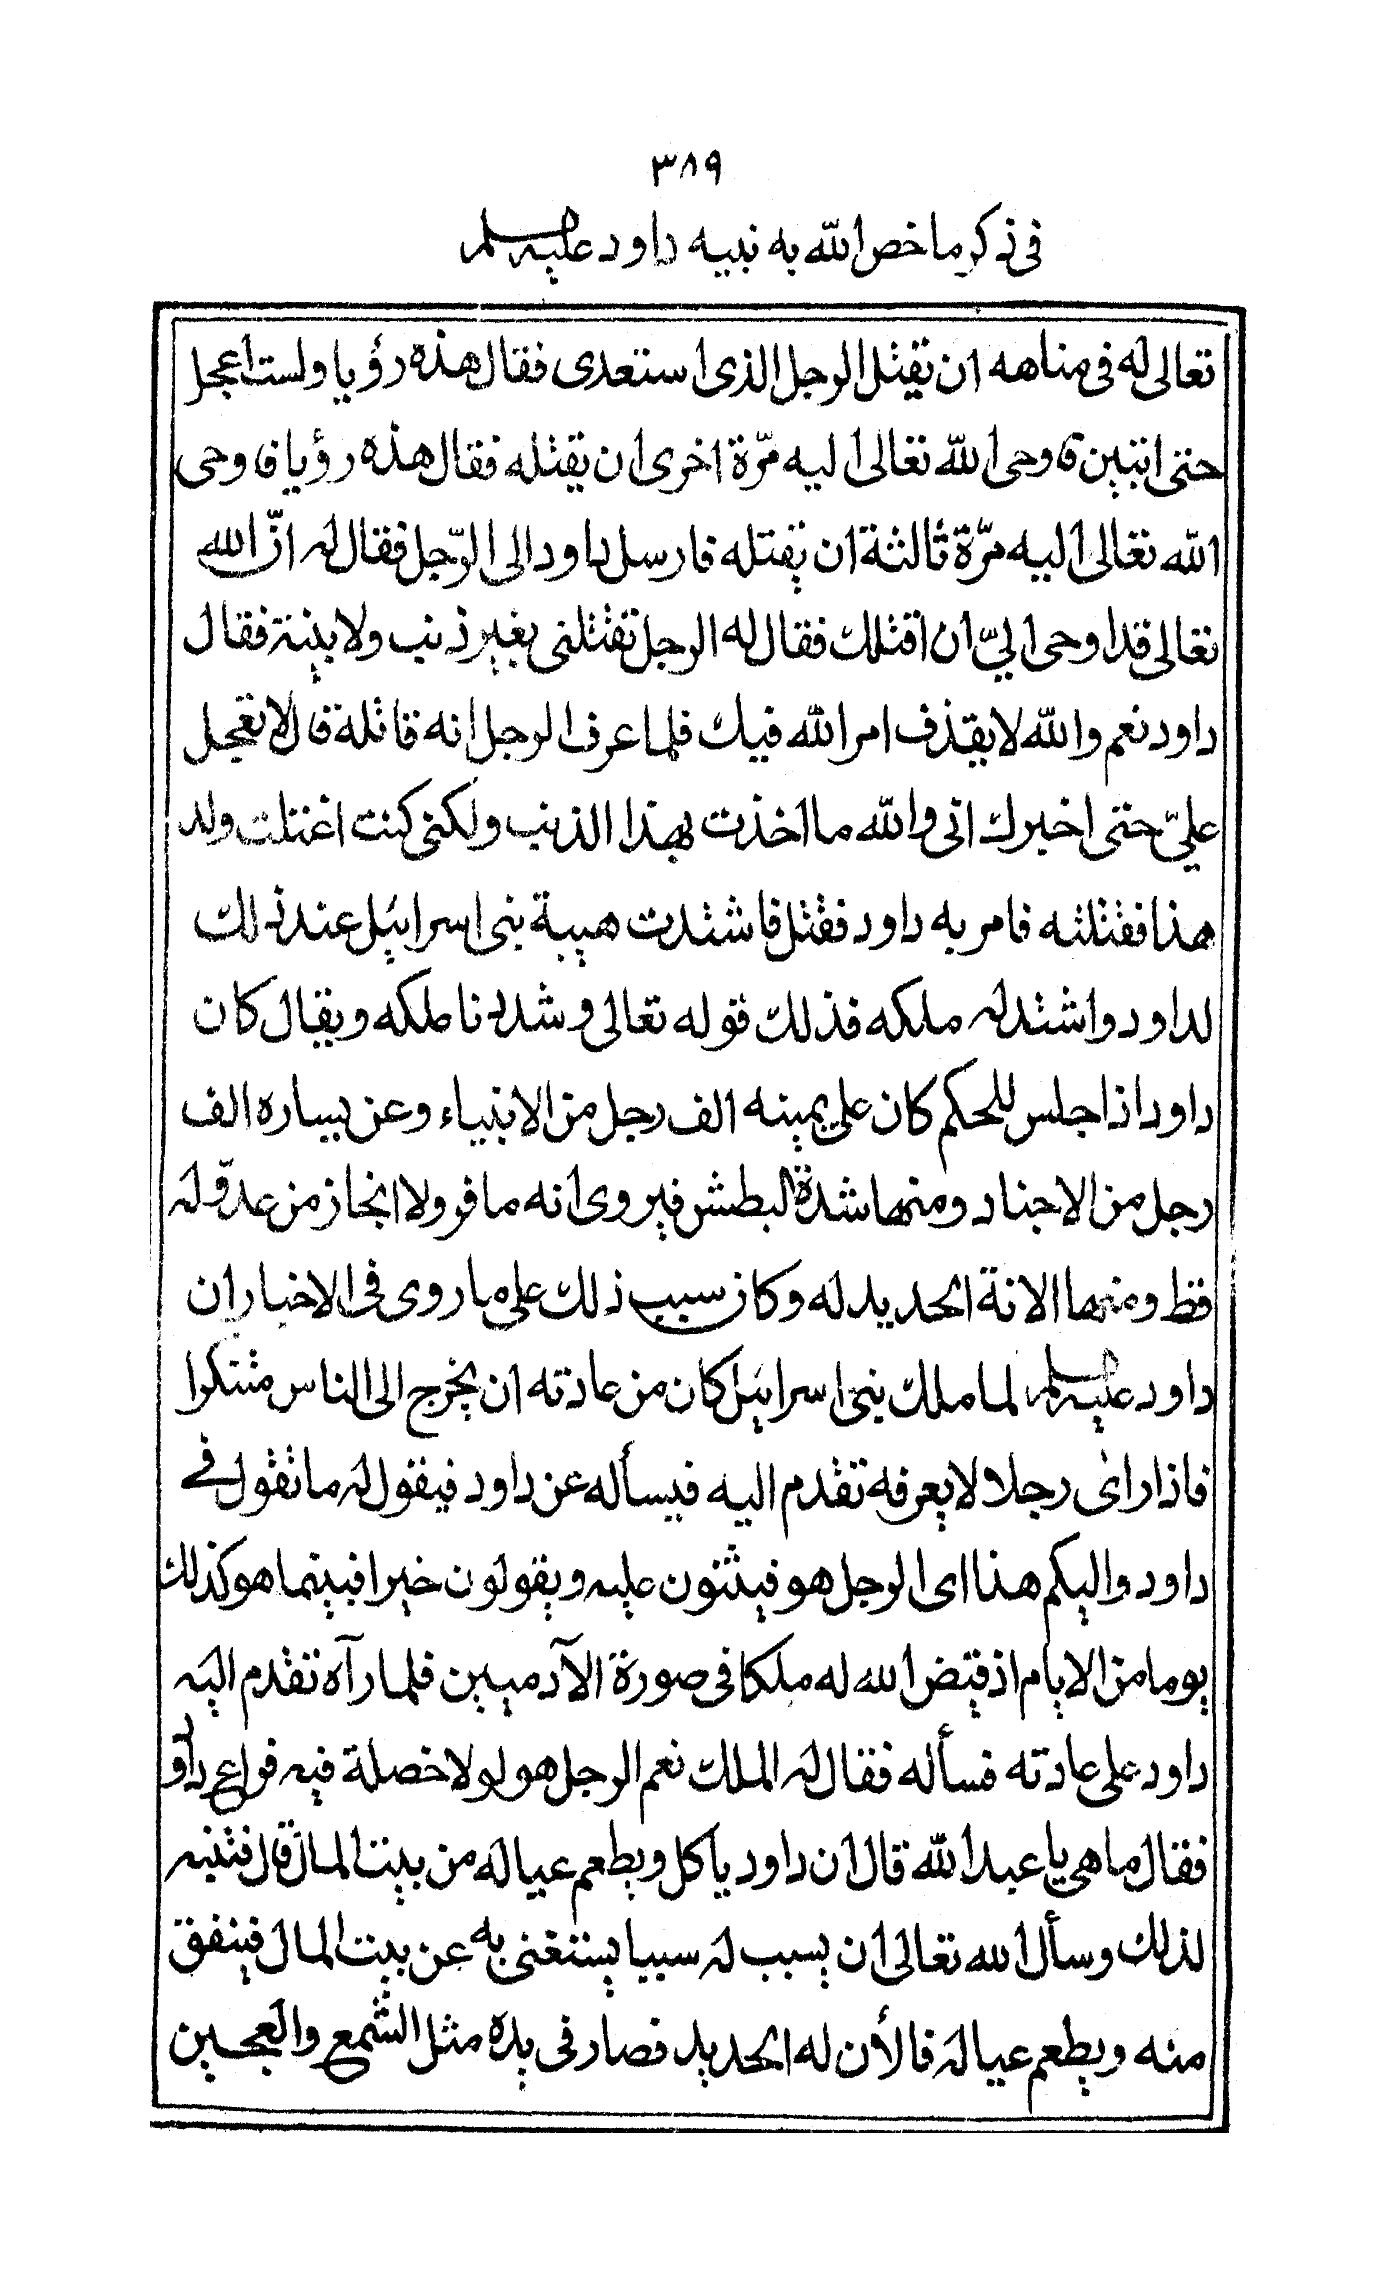 ٣٨٩
فى ذكر ما خص الله به نبيه داود عليه السلام
تعالى له فى منامه ان يقتل الرجل الذى استعدى فقال هذه رؤيا ولست اعجل
حتى اتبين فاوحى الله تعالى اليه مرّة اخرى ان يقتله فقال هذه رؤيا فاوحى
الله تعالى اليه مرّة ثالثة ان يقتله فارسل داود الى الرّجل فقال له انّ الله
تعالى قد اوحى اليّ ان اقتلك فقال له الرجل تقتلنى بغير ذنب ولا بينة فقال
داود نعم والله لا يقذف امر الله فيك فلما عرف الرجل انه قاتله قال لا تعجل
عليّ حتى اخبرك انى والله ما اخذت بهذا الذنب ولكنى كنت اغتلت ولد
هذا فقتلته فامر به داود فقتل فاشتدت هيبة بنى اسرايل عند ذلك
لداود واشتد له ملكه فذلك قوله تعالى وشددنا ملكه ويقال كان
داود اذا جلس للحكم كان على يمينه الف رجل من الانبياء وعن يساره الف
رجل من الاجناد ومنها شدة البطش فيروى انه ما فر ولا انحاز من عدوّ له
قط ومنها الانة الحديد له وكان سبب ذلك على ما روى فى الاخبار ان
داود عليه السلام لما ملك بنى اسرايل كان من عادته ان يخرج الى الناس متنكرا
فاذا راى رجلا لا يعرفه تقدم اليه فيسأله عن داود فيقول له ما تقول فى
داود واليكم هذا اى الرجل هو فيثنون عليه ويقولون خيرا فبينما هو كذلك
يوما من الايام اذ قيض الله له ملكا فى صورة الآدميين فلما رآه تقدم اليه
داود على عادته فسأله فقال له الملك نعم الرجل هو لولا خصلة فيه فراع داود
فقال ما هى يا عبد الله قال ان داود ياكل ويطعم عياله من بيت المال قال فتنبه
لذلك وسأل الله تعالى ان يسبب له سببا يستغنى به عن بيت المال فينفق
منه ويطعم عياله فالأن له الحديد فصار فى يده مثل الشمع والعجين